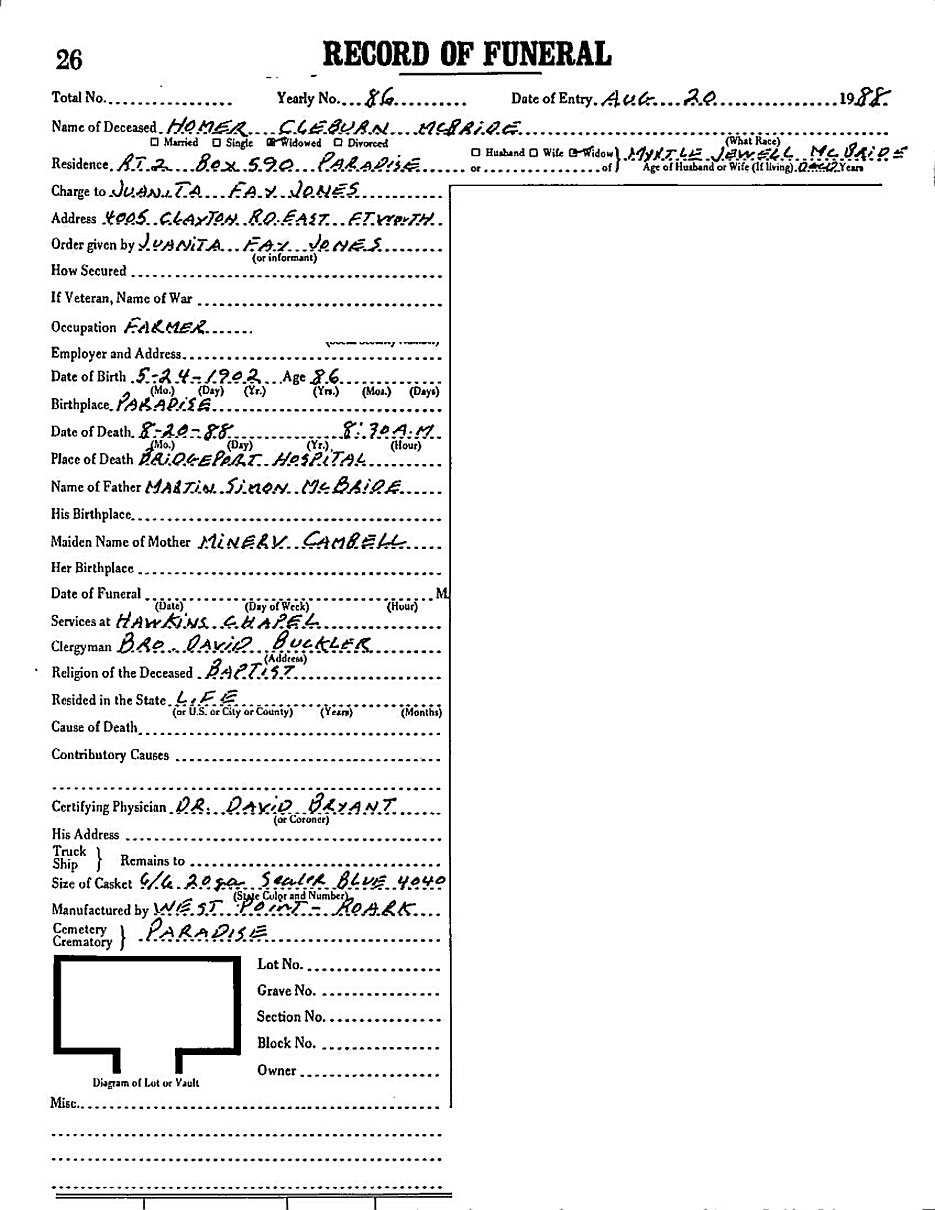 26
RECORD OF FUNERAL
Total No. Yearly No. 86 Date of Entry AUG 20 1988
Name of Deceased HOMER CLEBURN MCBRIDE
☐ Married ☐ Single ☒ Widowed ☐ Divorced (What Race)
Residence RT. 2 BOX 590 PARADISE ☐ Husband ☐ Wife ☒ Widow or of } MYRTLE JEWELL MCBRIDE
Age of Husband or Wife (If living) DECD Years
Charge to JUANITA FAY JONES
Address 4005 CLAYTON RD. EAST FT. WORTH
Order given by JUANITA FAY JONES
(or informant)
How Secured
If Veteran, Name of War
Occupation FARMER
Employer and Address
Date of Birth 5-24-1902 Age 86
(Mo.) (Day) (Yr.) (Yrs.) (Mos.) (Days)
Birthplace PARADISE
Date of Death 8-20-88 8:30 A.M
(Mo.) (Day) (Yr.) (Hour)
Place of Death BRIDGEPORT HOSPITAL
Name of Father MARTIN SIMON McBRIDE
His Birthplace
Maiden Name of Mother MINERV CAMBELL
Her Birthplace
Date of Funeral M.
(Date) (Day of Week) (Hour)
Services at HAWKINS CHAPEL
Clergyman BRO. DAVID BUCKLER
(Address)
Religion of the Deceased BAPTIST
Resided in the State LIFE
(or U.S. or City or County) (Years) (Months)
Cause of Death
Contributory Causes
Certifying Physician DR. DAVID BRYANT
(or Coroner)
His Address
Truck
Ship } Remains to
Size of Casket 6/6 20 ga Sealer BLUE 4040
(State Color and Number)
Manufactured by WEST POINT - ROARK
Cemetery
Crematory } PARADISE
Lot No.
Grave No.
Section No.
Block No.
Owner
Diagram of Lot or Vault
Misc.